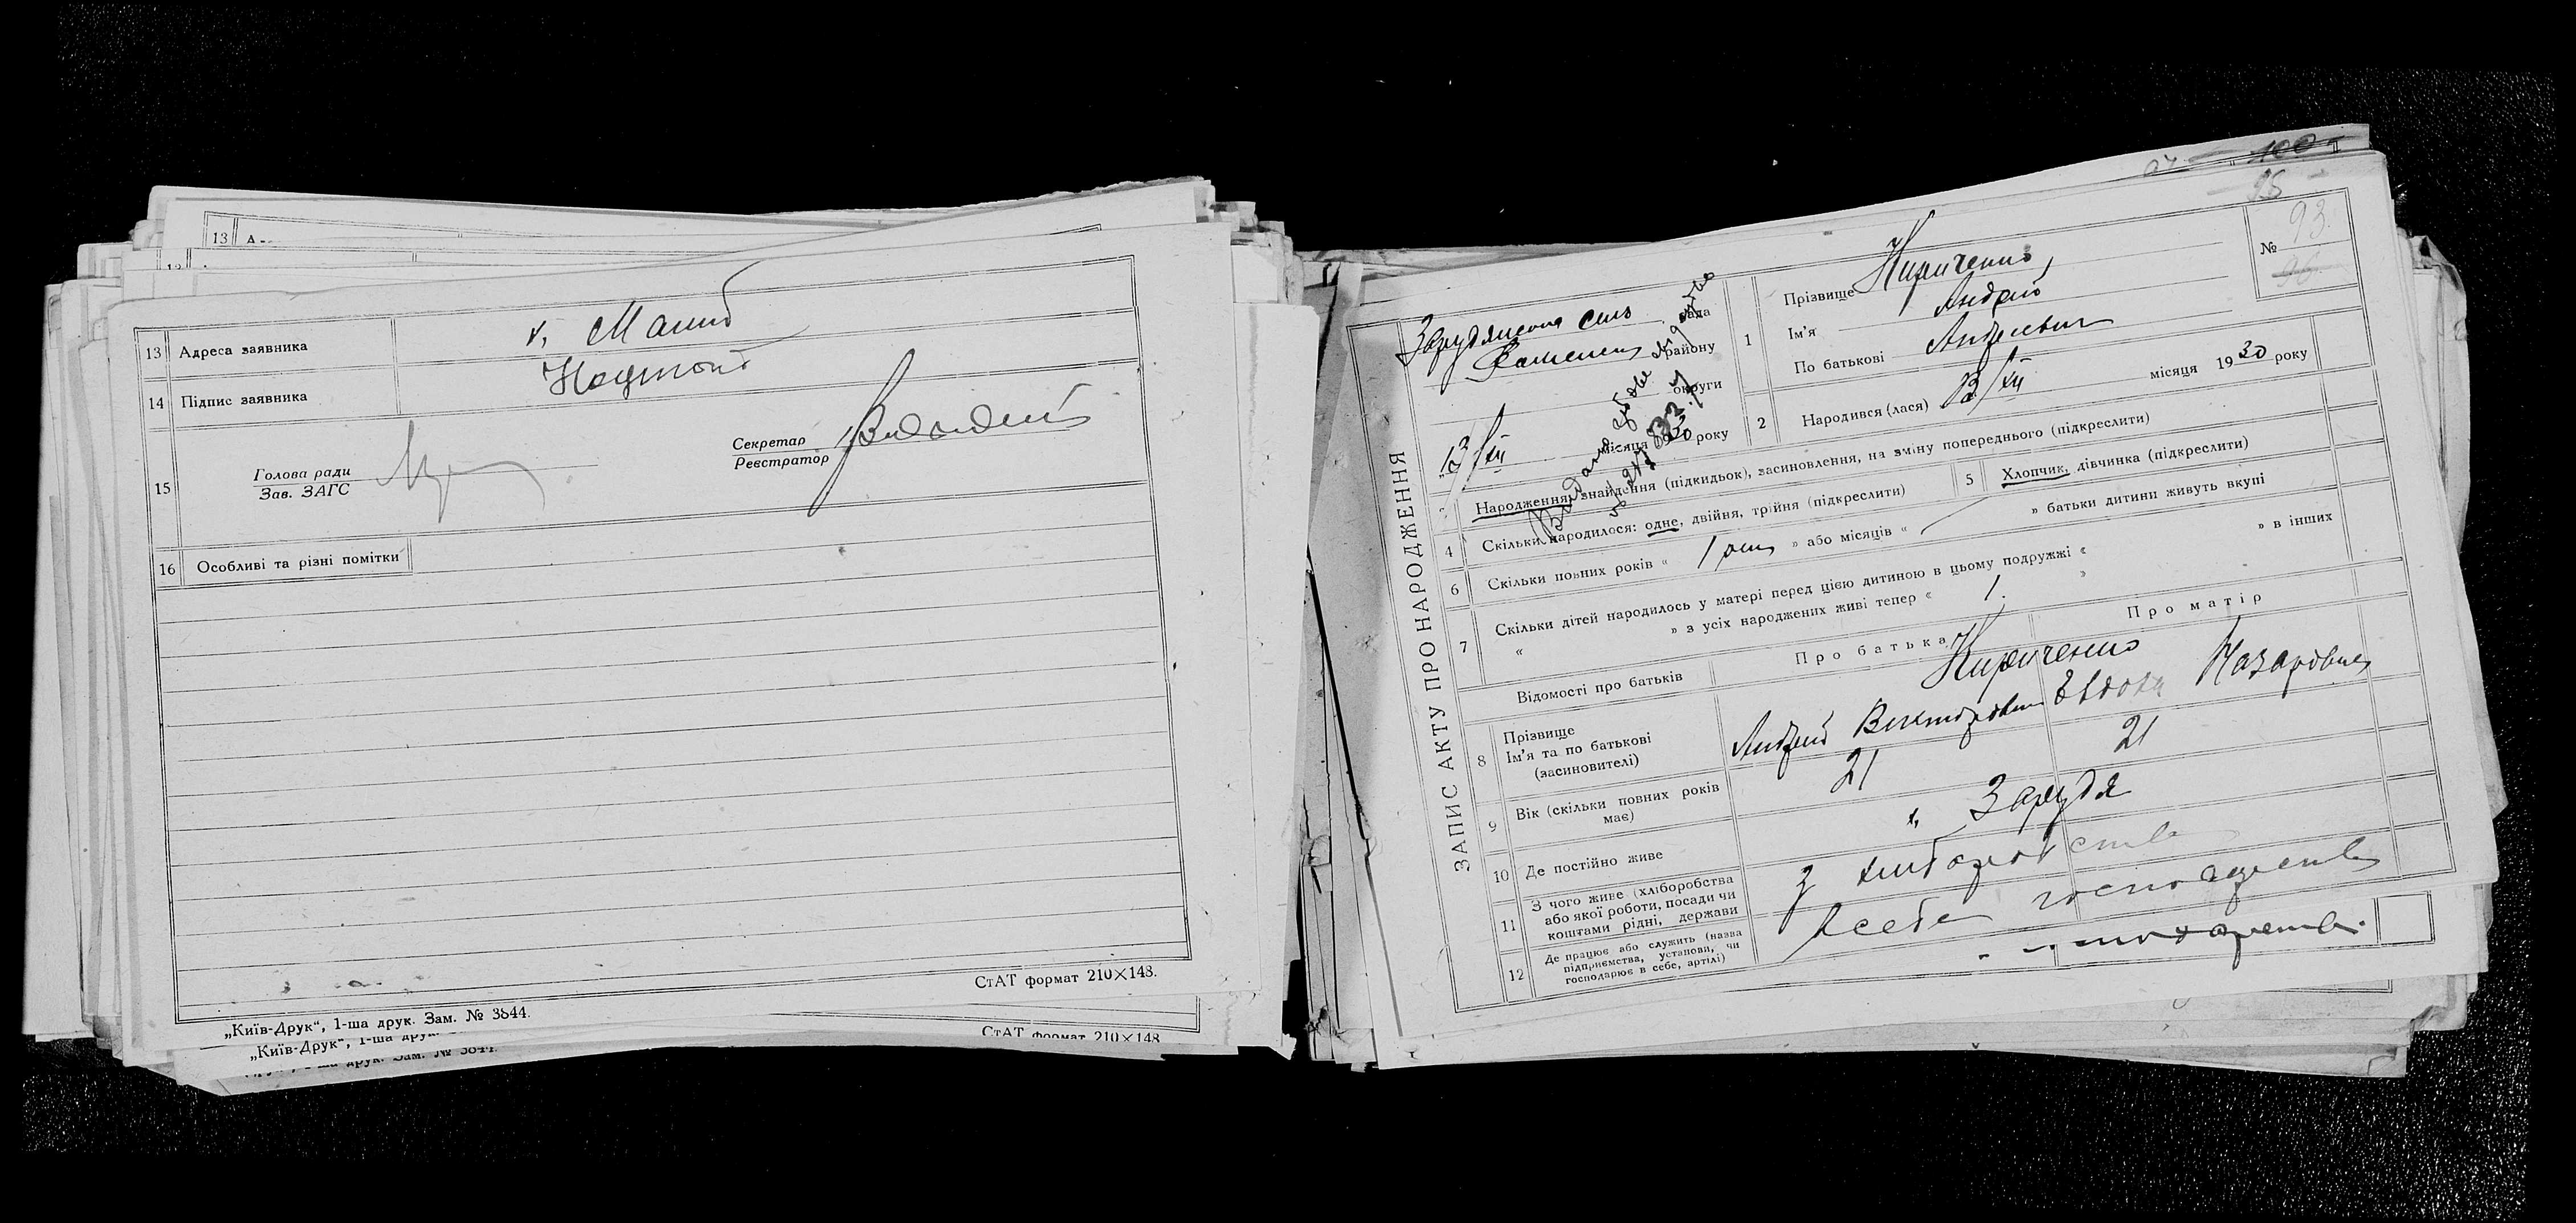 13 А
13 Адреса заявника х. Малиб
14 Підпис заявника
15 Голова ради
Зав. ЗАГС
Секретар
Реєстратор
16 Особливі та різні помітки
СтАТ формат 210×148.
„Київ-Друк“, 1-ша друк. Зам. № 3844.
СтАТ формат 210×148
„Київ-Друк“, 1-ша друк.
друк. Зам. № 3844.
100
95
ЗАПИС АКТУ ПРО НАРОДЖЕННЯ
рада
району
округи
13/XII місяця 1930 року
№ 93.
96.
1 Прізвище Кириченко
Ім'я Андрій
По батькові Андрієвич
2 Народився (лася) 13/XII місяця 1930 року
3 Народження, знайдення (підкидьок), засиновлення, на зміну попереднього (підкреслити)
4 Скільки народилося: одне, двійня, трійня (підкреслити)
5 Хлопчик, дівчинка (підкреслити)
6 Скільки повних років « 1 » або місяців « » батьки дитини живуть вкупі
7 Скільки дітей народилось у матері перед цією дитиною в цьому подружжі « » в інших
« » з усіх народжених живі тепер « 1. »
Відомості про батьків Про батька Про матір
8 Прізвище Кириченко
Ім'я та по батькові Андрій Вікторович Евдокія Назаровна
(засиновителі)
9 Вік (скільки повних років має) 21 21
10 Де постійно живе х. Заруддя
11 З чого живе (хліборобства
або якої роботи, посади чи
коштами рідні, держави
з хліборобства
12 Де працює або служить (назва
підприємства, установи, чи
господарює в себе, артілі)
в себе господарстві